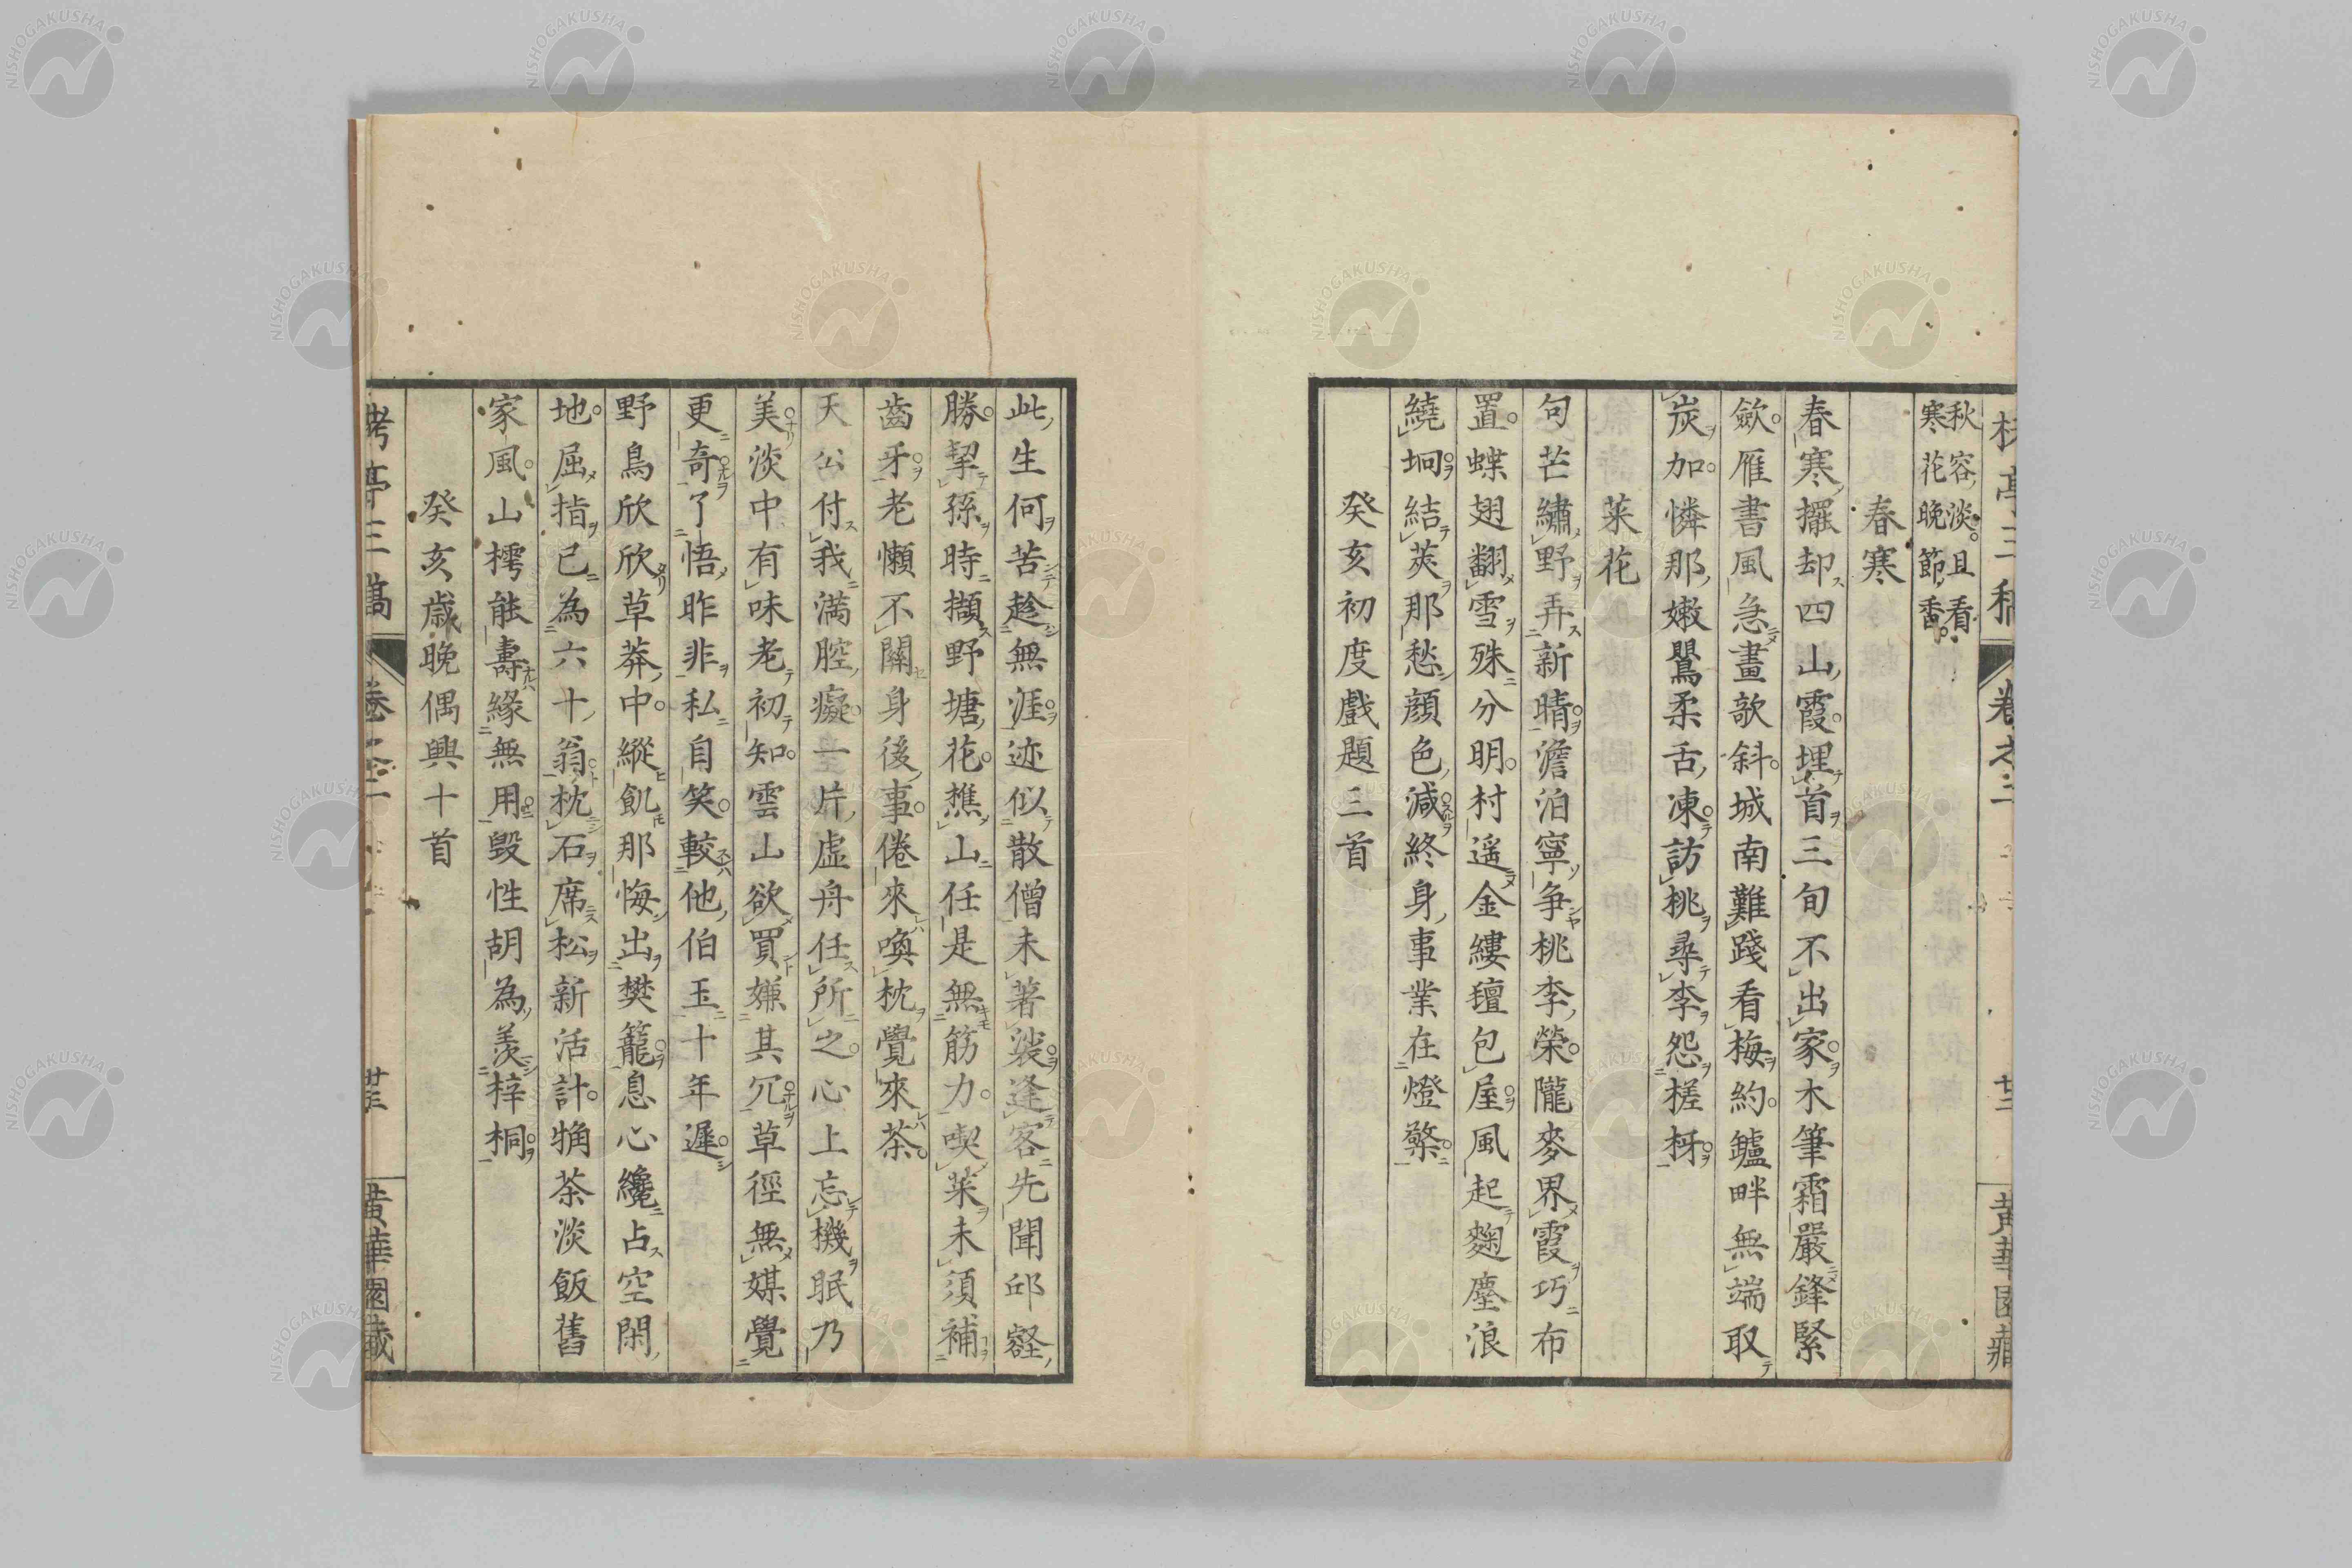 秋容淡。且看
寒花晩節香。
春寒
春寒擺却四山霞埋首三旬不出家木筆霜嚴鋒緊
歛雁書風急畫欹斜城南難踐看梅約鑪畔無端取
炭加憐那嫩鸎柔舌凍訪桃尋李怨槎枒
菜花
句芒繡野弄新晴澹泊寧爭桃李榮隴麥界霞巧布
置蝶翅翻雪殊分明村遥金縷穜包屋風起麹塵浪
繞坰結莢那愁顔色減終身事業在燈檠
癸亥初度戲題三首
此生何苦趁無涯迹似散僧未著袈逢客先聞邱壑
勝挈孫時擷野塘花樵山任是無筋力喫菜未須補
齒牙老懶不關身後事倦來喚枕覺來茶
天公付我滿腔癡一片虛舟任所之心上忘機眠乃
美淡中有味老初知雲山欲買嫌其冗草徑無媒覺
更奇了悟昨非私自笑較他伯玉十年遲
野鳥欣欣草莽中縱飢那悔出樊籠息心纔占空閑
地屈指已為六十翁枕石席松新活計觕茶淡飯舊
家風山樗能壽緣無用毀性胡為羨梓桐
癸亥歳晩偶興十首
亭三稿 卷之三 廿三 黄華園藏